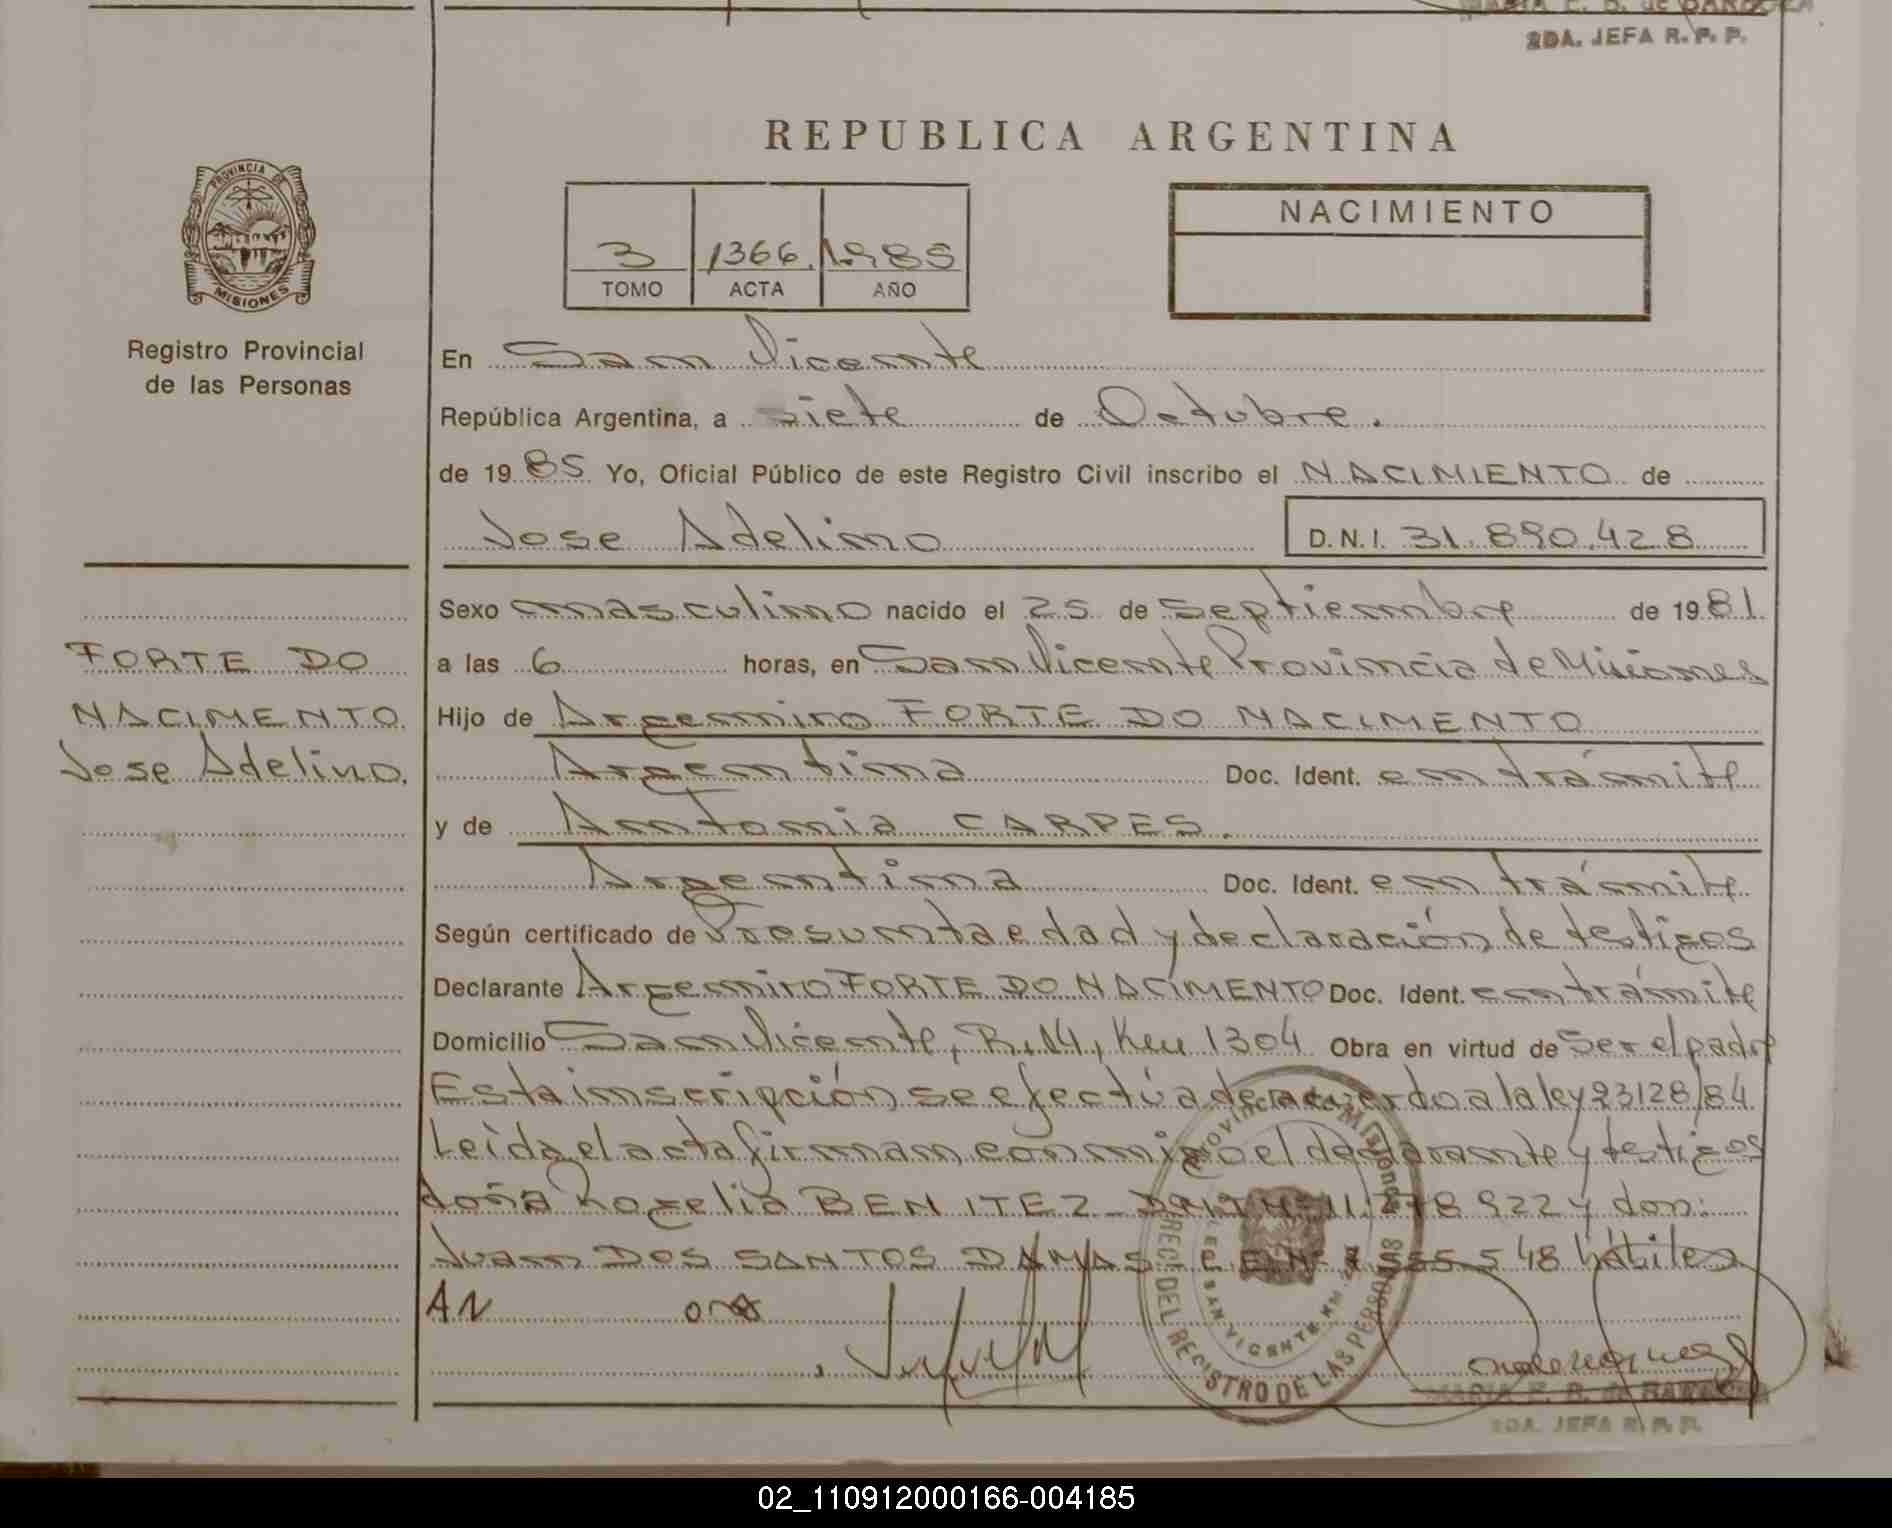 MARIA E. B. de BARBOZA
2DA. JEFA R. P. P.
REPUBLICA ARGENTINA
PROVINCIA DE
MISIONES
Registro Provincial
de las Personas
3 1366. 1.985
TOMO ACTA AÑO
NACIMIENTO
En San Vicente
República Argentina, a siete de Octubre.
de 19 85 Yo, Oficial Público de este Registro Civil inscribo el NACIMIENTO de
Jose Adelino D.N.I. 31.890.428
FORTE DO
NACIMENTO
Jose Adelino.
Sexo masculino nacido el 25 de Septiembre de 19 81.
a las 6 horas, en San Vicente Provincia de Misiones
Hijo de Argemiro FORTE DO NACIMENTO
Argentina Doc. Ident. en trámite
y de Antonia CARPES.
Argentina Doc. Ident. en trámite
Según certificado de Presunta edad y declaración de testigos
Declarante Argemiro FORTE DO NACIMENTO Doc. Ident. en trámite
Domicilio San Vicente, R.14, Km 1304 Obra en virtud de Ser el padre
Esta inscripción se efectúa de acuerdo a la ley 23128/84
Leida el acta firman conmigo el declarante y testigos
doña Rogelia BENITEZ 11.278.922 y don:
Juan DOS SANTOS DAMAS 555.548 hábiles
AN
PROVINCIA DE MISIONES
REC. DEL REGISTRO DE LAS PERSONAS
SAN VICENTE
2DA. JEFA R. P. P.
02_110912000166-004185